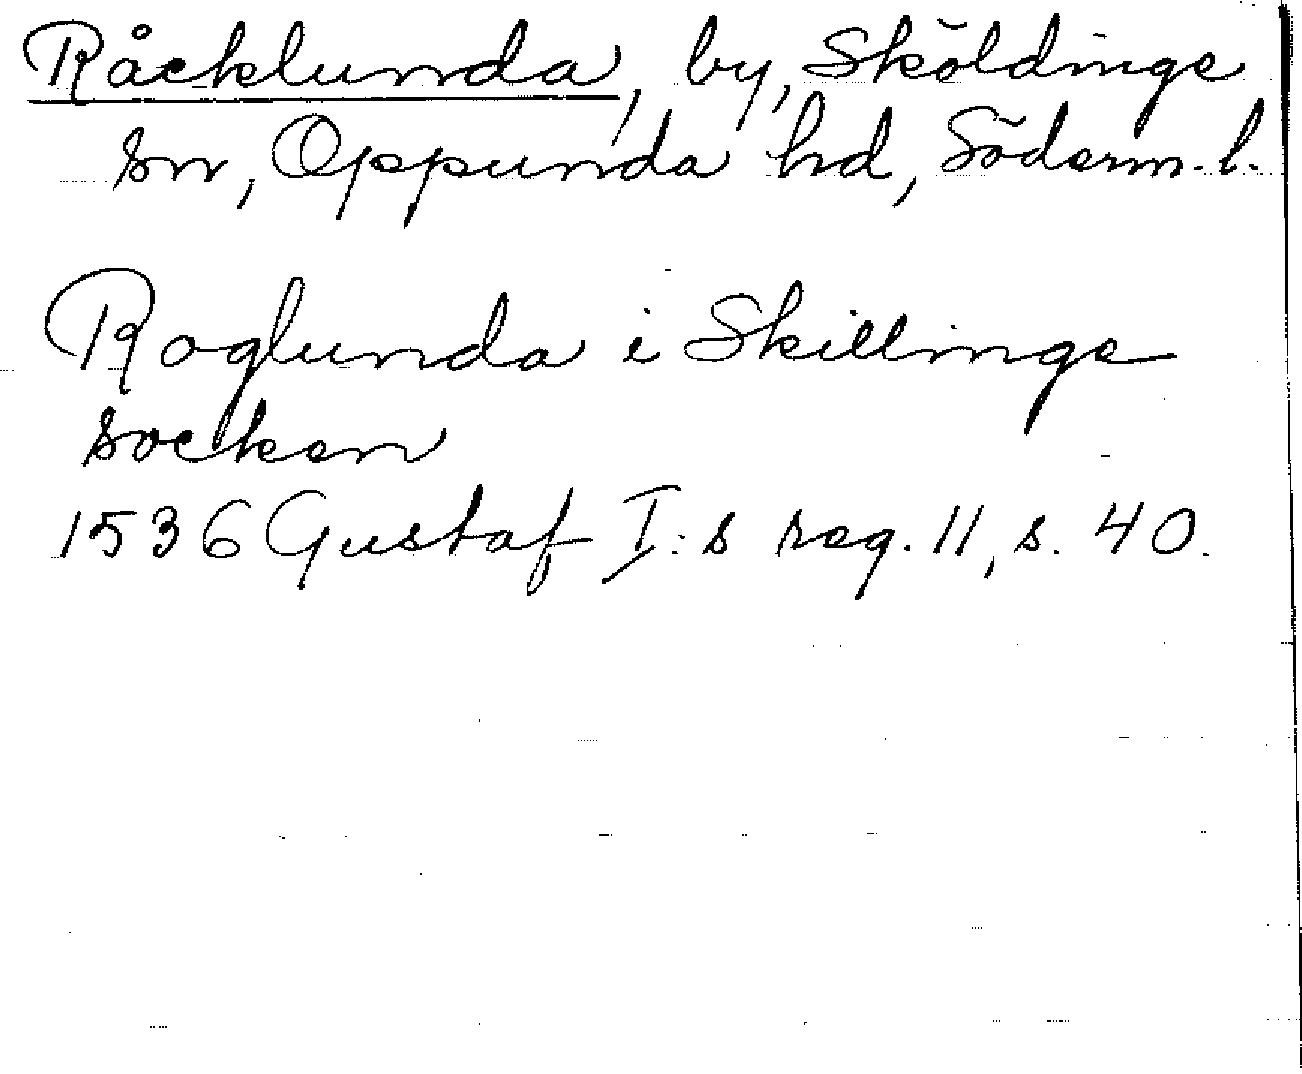 Råcklunda, by, Sköldinge
sn, Oppunda hd, Söderm. l.
Roglunda i Skillinge
socken
1536 Gustaf I:s reg. 11, s. 40.